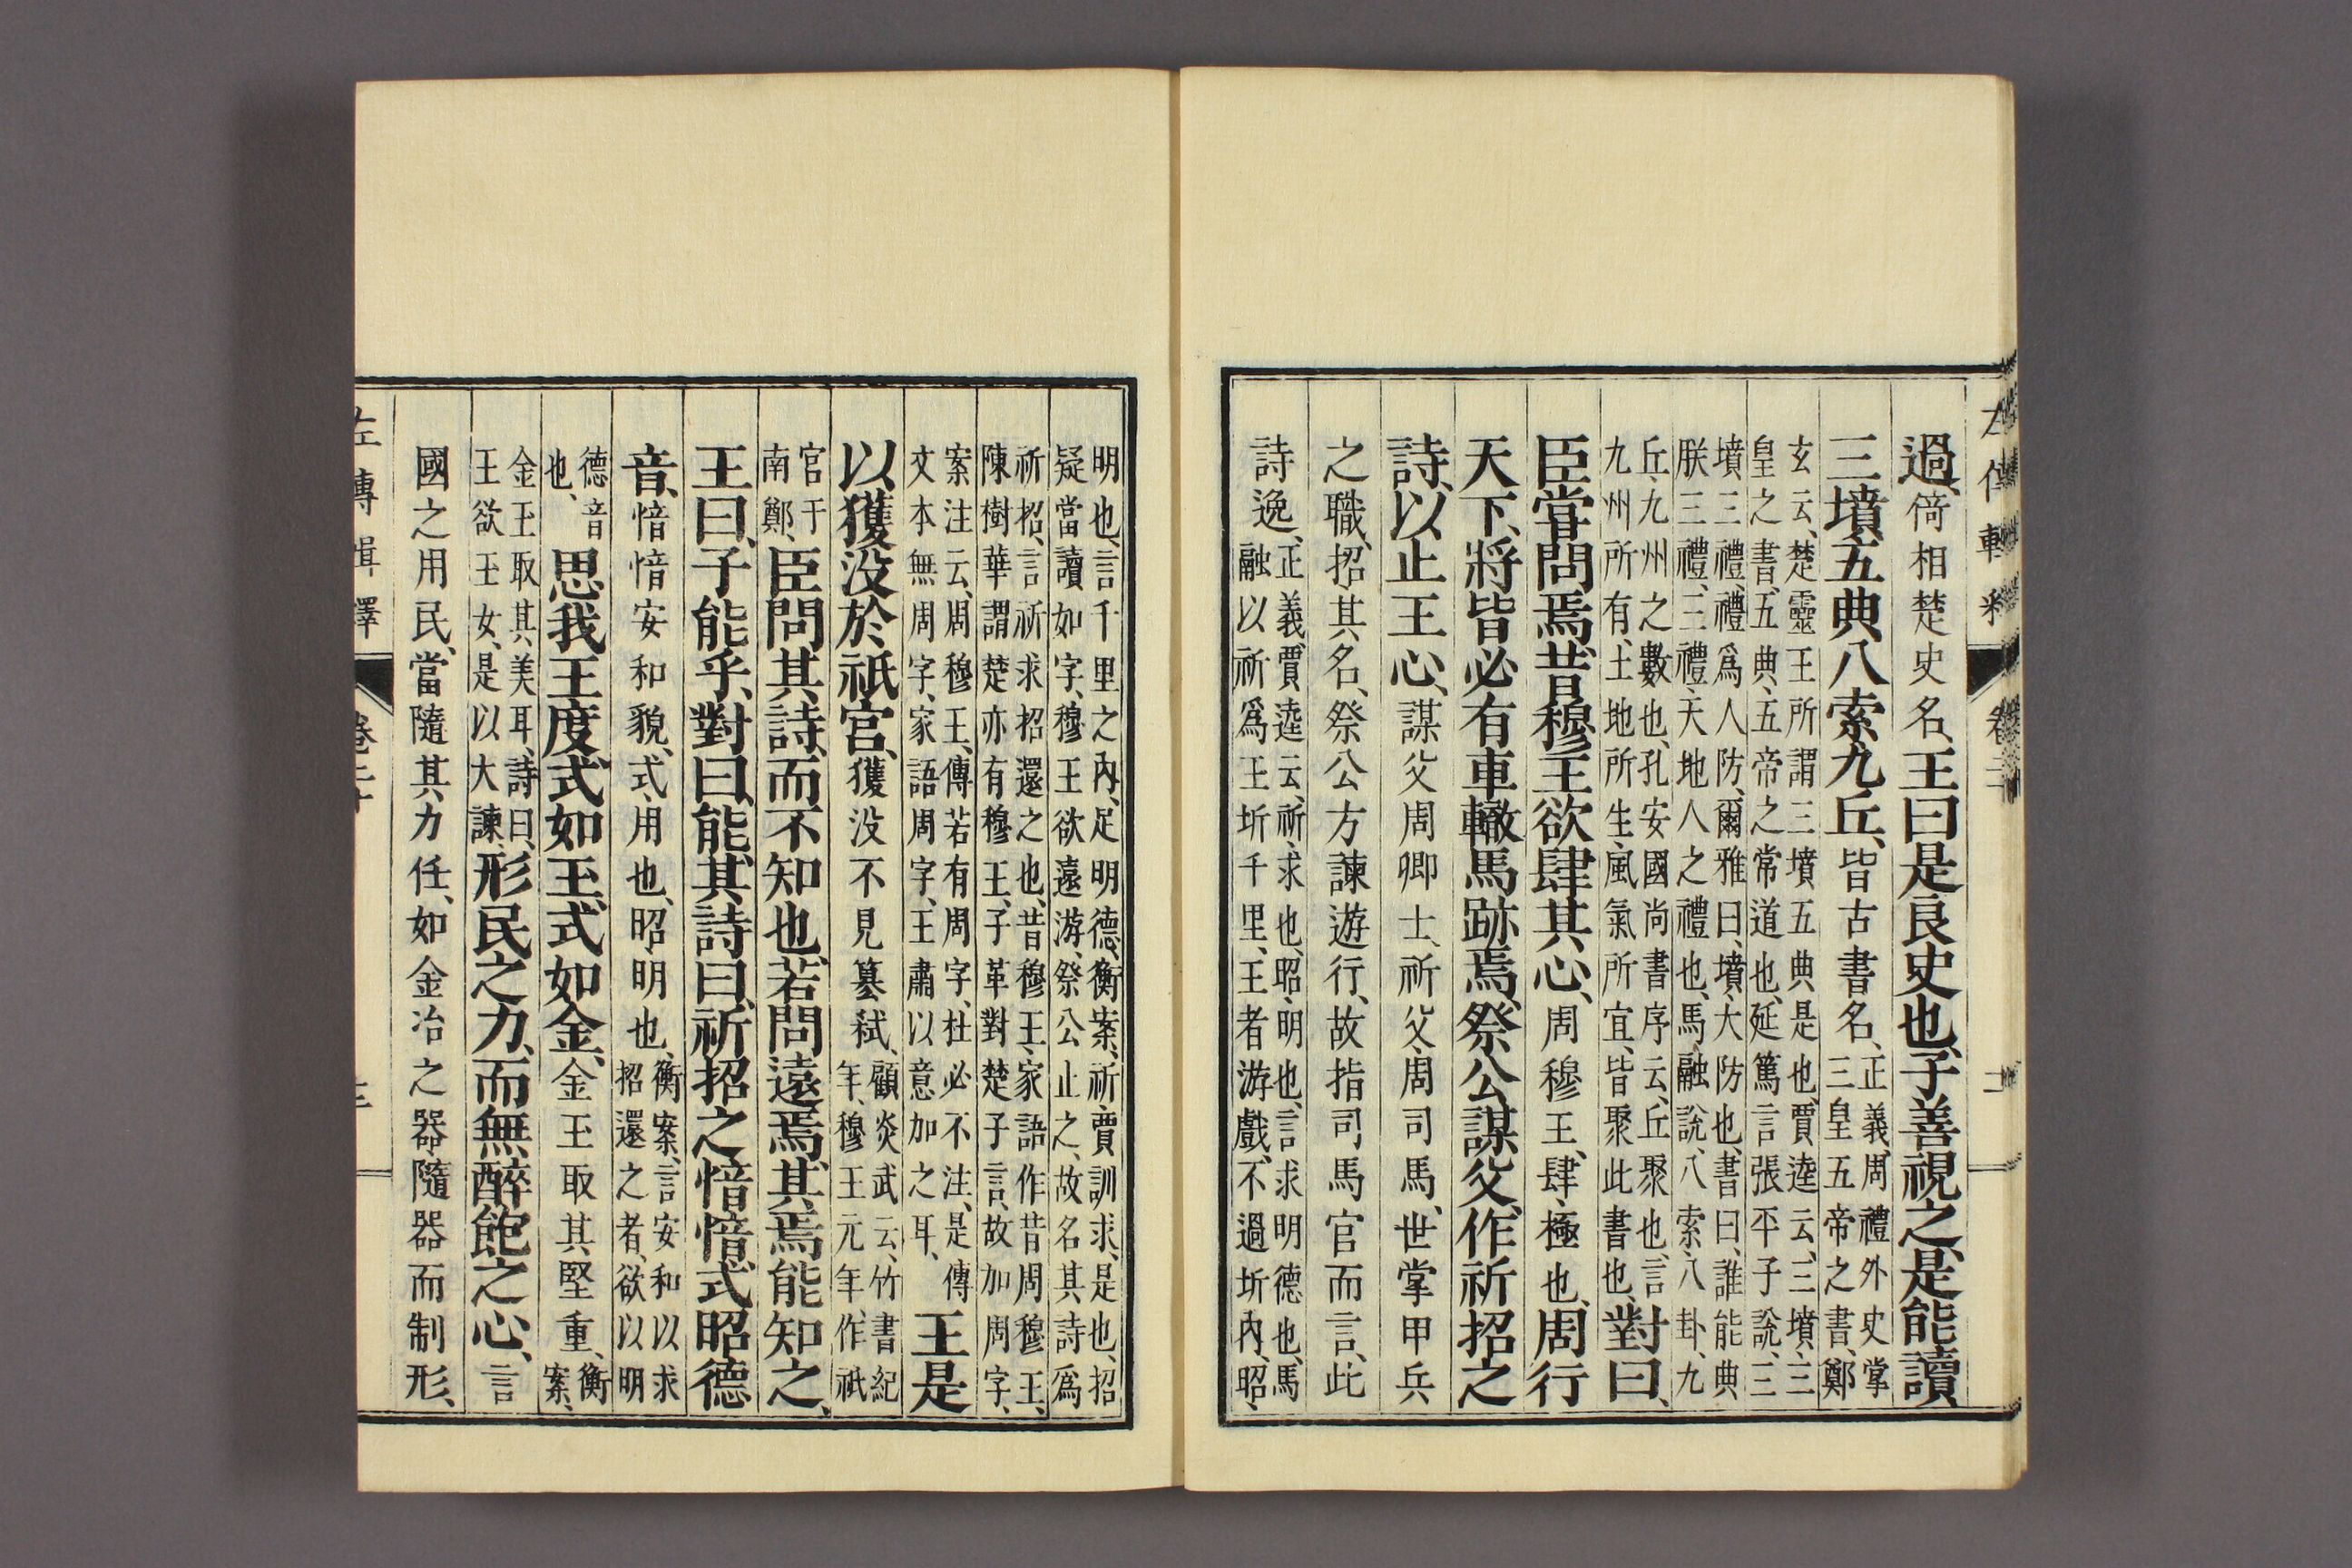 過、倚相楚史名、王曰、是良史也、子善視之、是能讀
三墳五典八索九丘、皆古書名、正義、周禮外史掌三皇五帝之書、鄭
玄云、楚靈王所謂三墳五典是也、賈逵云、三墳、三皇之書、五典、五帝之常道也、延篤言張平子說、三
墳三禮、禮爲人防、爾雅曰、墳、大防也、書曰、誰能典朕三禮、三禮、天地人之禮也、馬融說、八索、八卦、九
丘、九州之數也、孔安國尚書序云、丘聚也、言九州所有、土地所生、風氣所宜、皆聚此書也、對曰、
臣嘗問焉、昔穆王欲肆其心、周穆王、肆、極也、周行
天下、將皆必有車轍馬跡焉、祭公謀父、作祈招之
詩、以止王心、謀父周卿士、祈父、周司馬、世掌甲兵
之職、招其名、祭公方諫遊行、故指司馬官而言、此
詩逸、正義、賈逵云、祈、求也、昭、明也、言求明德也、馬融以祈爲王圻千里、王者游戲、不過圻內、昭、
明也、言千里之內、足明德、衡案、祈、賈訓求、是也、招疑當讀如字、穆王欲遠游、祭公止之、故名其詩爲
祈招、言祈求招還之也、昔穆王、家語作昔周穆王、陳樹華謂楚亦有穆王、子革對楚子言、故加周字、
案注云、周穆王、傳若有周字、杜必不注、是傳文本無周字、家語周字、王肅以意加之耳、王是
以獲没於祇宮、獲没不見簒弑、顧炎武云、竹書紀年、穆王元年、作祇
官于南鄭、臣問其詩、而不知也、若問遠焉、其焉能知之、
王曰、子能乎、對曰、能、其詩曰、祈招之愔愔、式昭德
音、愔愔安和貌、式、用也、昭、明也、衡案、言安和以求招還之者、欲以明
德音也、思我王度、式如玉、式如金、金玉取其堅重、衡案、
金玉取其美耳、詩曰、王欲玉女、是以大諫、形民之力、而無醉飽之心、言
國之用民、當隨其力任、如金冶之器、隨器而制形、
左傳輯釋
卷二十